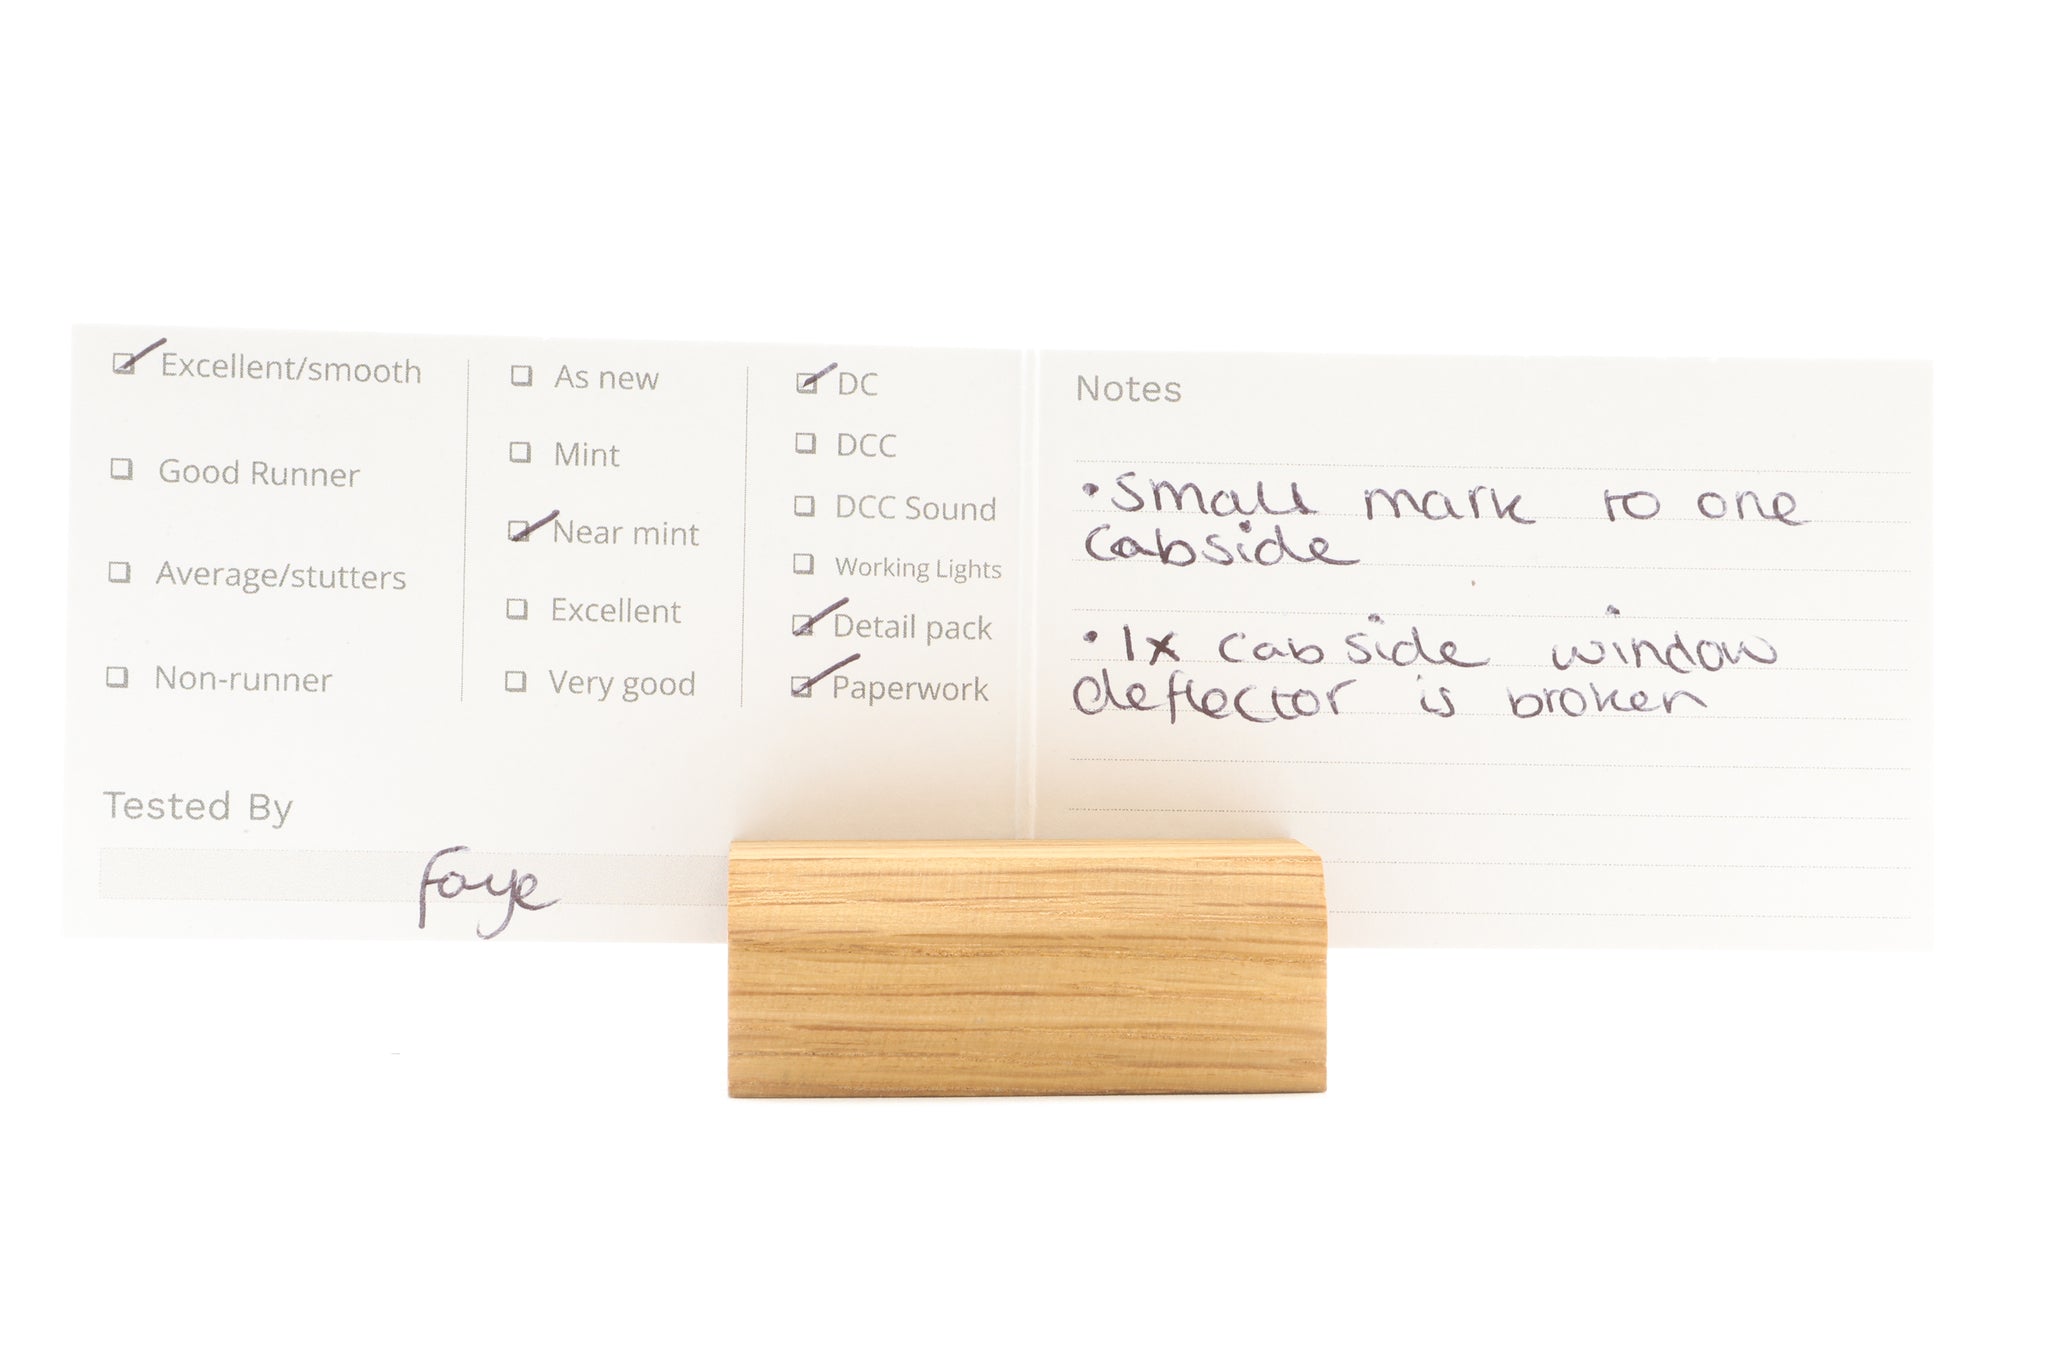 Excellent/smooth
Good Runner
Average/stutters
Non-runner
As new
Mint
Near mint
Excellent
Very good
DC
DCC
DCC Sound
Working Lights
Detail pack
Paperwork
Tested By
Faye
Notes
• Small mark to one
cabside
• 1x cabside window
deflector is broken